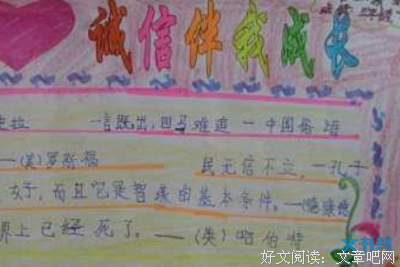 诚信伴我成长
一言既出，四马难追 — 中国俗语
—(美)罗斯福 民无信不立，—孔子
而且它是智 由基本条件。
界上已经死了。—(英)哈伯特
好文阅读：文章吧网